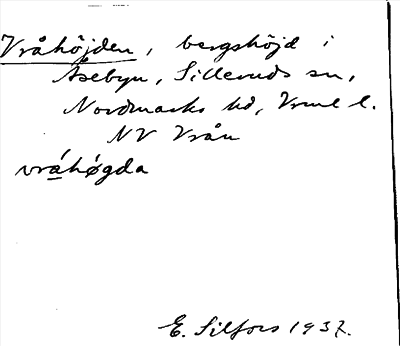 Vråhöjden, bergshöjd i
Åsebyn, Silleruds sn,
Nordmarks hd, Vrml l.
NV Vrån
vrá̱høgda
E. Silfors 1937.